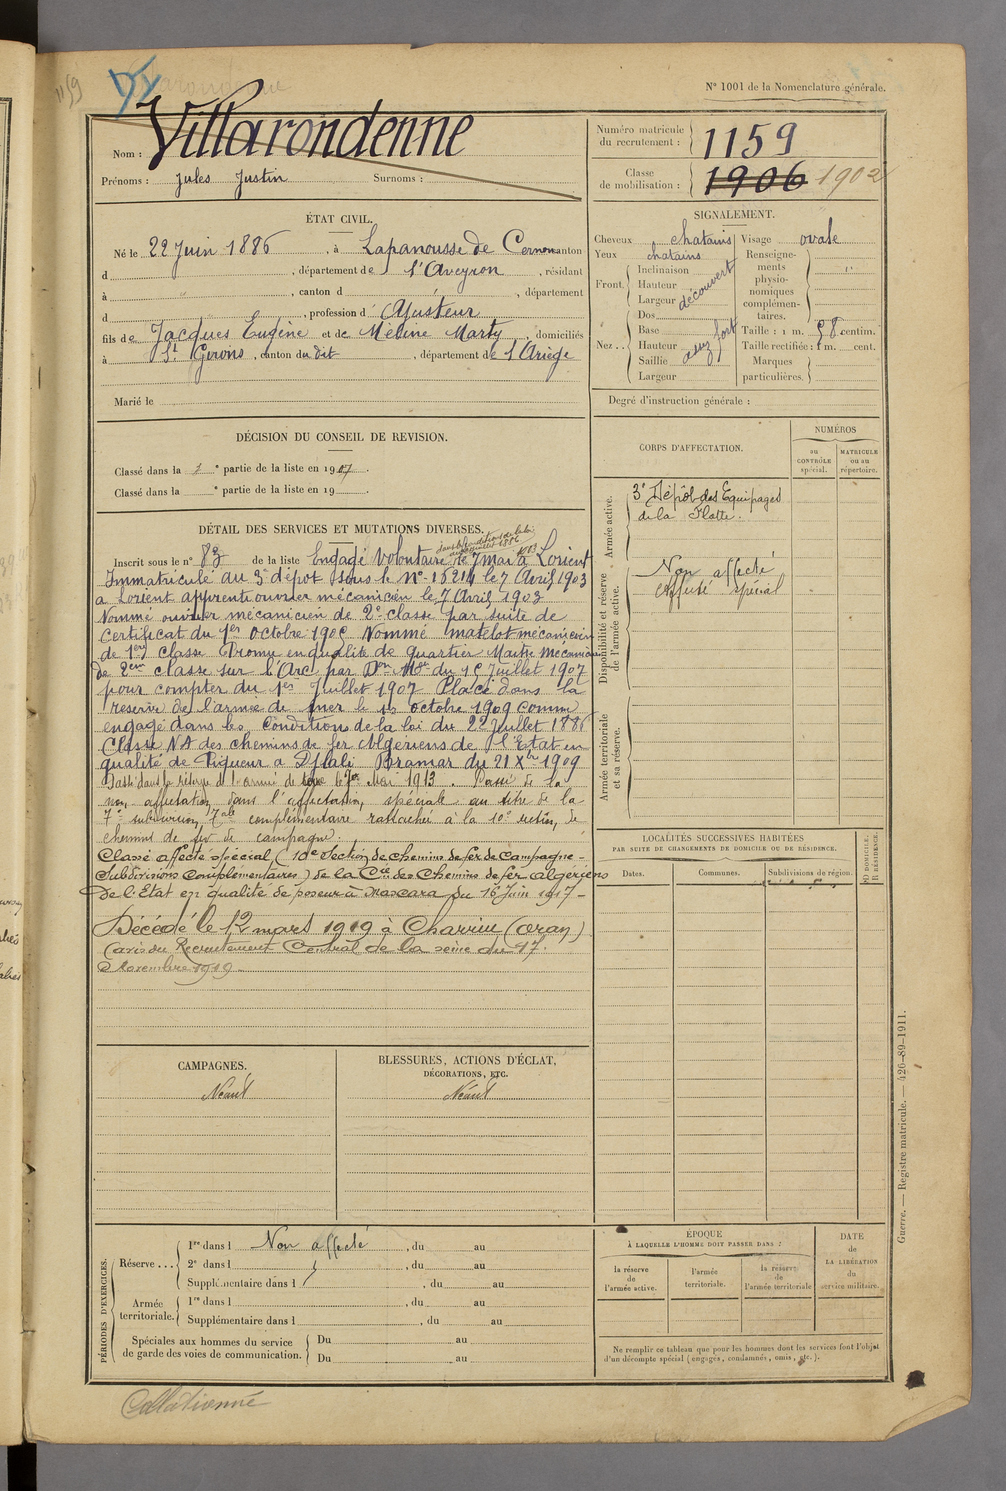 1159
N° 1001 de la Nomenclature générale.
Nom : Villarondenne
Prénoms : Jules Justin Surnoms :
Numéro matricule du recrutement : 1159
Classe de mobilisation : 1906 1902
ÉTAT CIVIL.
Né le 22 Juin 1886, à Lapanousse de Cernon canton
d , département de l'Aveyron, résidant
à , canton d , département
d , profession d'Ajusteur
fils de Jacques Eugène et de Marty, domiciliés
à St Girons, canton du dit, département de l'Ariège
Marié le
SIGNALEMENT.
Cheveux chatains
Yeux chatains
Front. Inclinaison
Hauteur
Largeur découvert
Nez .. Dos
Base
Hauteur assez fort
Saillie
Largeur
Visage ovale
Renseignements physionomiques complémentaires. "
Taille : 1 m. 58 centim.
Taille rectifiée : 1 m. cent.
Marques particulières.
Degré d'instruction générale :
DÉCISION DU CONSEIL DE REVISION.
Classé dans la 1e partie de la liste en 1907.
Classé dans la e partie de la liste en 19 .
DÉTAIL DES SERVICES ET MUTATIONS DIVERSES.
dans les conditions de la loi
du Juillet 1886
Inscrit sous le n° 83 de la liste Engagé Volontaire le 7 mai à Lorient
Immatriculé au 3e dépot sous le N° 15214 le 7 Avril 1903
a Lorient apprenti ouvrier mécanicien le 7 Avril 1903
Nommé ouvrier mécanicien de 2e classe par suite de
Certificat du 1er Octobre 190 Nommé matelot mécanicien
de 1ere Classe Promu en qualité de Quartier Maitre Mécanicien
de 2em classe sur l'Arc par Don Mle du 15 Juillet 1907
pour compter du 1er Juillet 1907 Placé dans la
reserve de l'armée de mer le 1er octobre 1909 comme
engagé dans les Conditions de la loi du 22 Juillet 1886
Classé NA des chemins de fer Algeriens de l'Etat en
qualité de Piqueur a Djlali Bramar du 21 Xbre 1909
Passé dans la réserve de l'armée de terre le 7 Mai 1913. Passé de la
non affectation dans l'affectation spéciale au titre de la
7e subdivision complémentaire rattachée à la 10e section de
chemins de fer de campagne.
Classé affecté spécial (10e Section de chemins de fer de Campagne -
Subdivisions Complémentaires) de la Cie des Chemins de fer algériens
de l'Etat en qualité de poseur à Mascara du 16 Juin 1917 -
Décédé le 12 mars 1919 à Charrier (oran)
(avis du Recrutement Central de la Seine du 17
Novembre 1919
CORPS D'AFFECTATION.
NUMÉROS
au CONTRÔLE spécial.
MATRICULE ou au répertoire.
Armée active.
3e Dépôt des Equipages
de la Flotte.
Disponibilité et réserve de l'armée active.
Non affecté
affecté spécial
Armée territoriale et sa réserve.
LOCALITÉS SUCCESSIVES HABITÉES
PAR SUITE DE CHANGEMENTS DE DOMICILE OU DE RÉSIDENCE.
Dates. Communes. Subdivisions de région. D) DOMICILE. R) RÉSIDENCE.
CAMPAGNES.
Néant
BLESSURES, ACTIONS D'ÉCLAT,
DÉCORATIONS, ETC.
Néant
PÉRIODES D'EXERCICES.
Réserve ... 1re dans l Non affecté, du au
2e dans l , du au
Supplémentaire dans l , du au
Armée territoriale. 1re dans l , du au
Supplémentaire dans l , du au
Spéciales aux hommes du service de garde des voies de communication. Du au
Du au
ÉPOQUE
À LAQUELLE L'HOMME DOIT PASSER DANS :
la réserve de l'armée active.
l'armée territoriale.
la réserve de l'armée territoriale
DATE de LA LIBÉRATION du service militaire.
Ne remplir ce tableau que pour les hommes dont les services font l'objet
d'un décompte spécial (engagés, condamnés, omis, etc.).
Guerre. — Registre matricule. — 426-89-1911.
Collationné